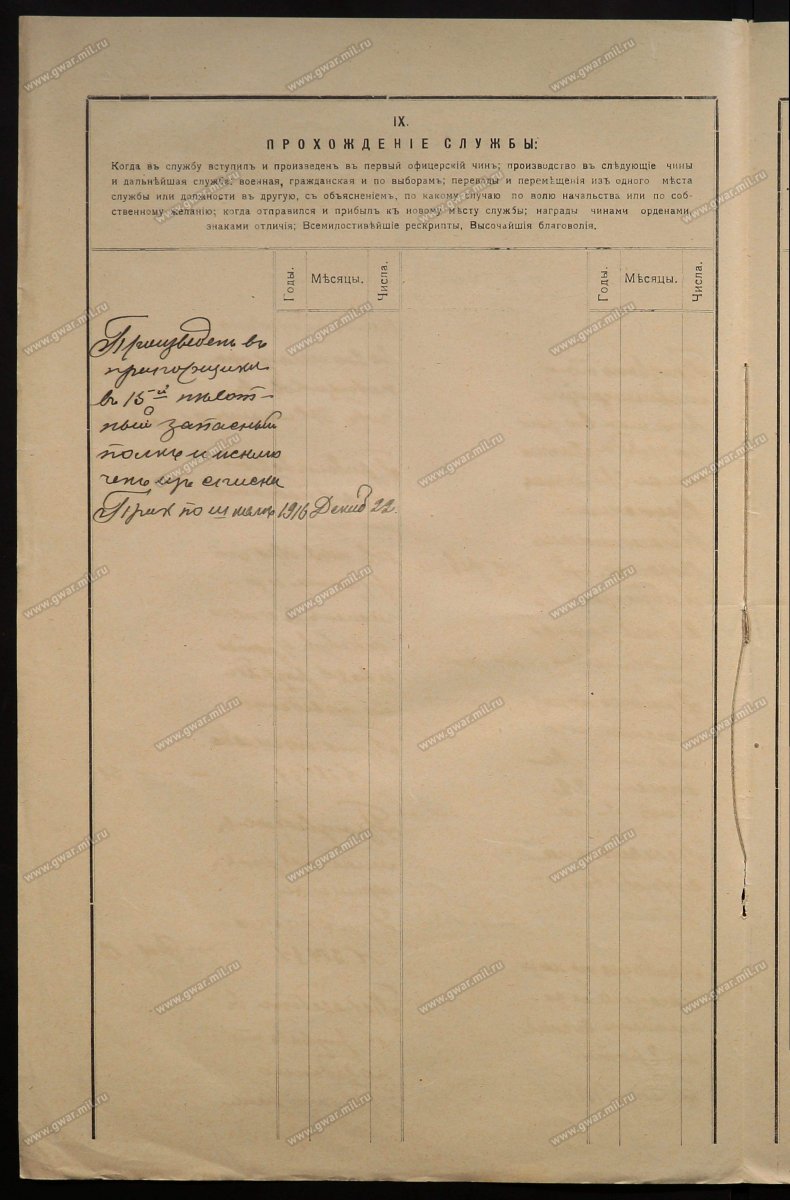 IX.
ПРОХОЖДЕНІЕ СЛУЖБЫ:
Когда въ службу вступилъ и произведенъ въ первый офицерскій чинъ; производство въ слѣдующіе чины
и дальнѣйшая служба: военная, гражданская и по выборамъ; переводы и перемѣщенія изъ одного мѣста
службы или должности въ другую, съ объясненіемъ, по какому случаю по волю начальства или по соб-
ственному желанію; когда отправился и прибылъ къ новому мѣсту службы; награды чинами орденами,
знаками отличія; Всемилостивѣйшіе рескрипты, Высочайшія благоволія.
Годы. Мѣсяцы. Числа. Годы. Мѣсяцы. Числа.
Произведенъ въ
прапорщики
въ 15-й пѣхот-
ный запасный
полкъ и исклю
ченъ изъ списка
Прик по школѣ 1916 Декаб 22.
www.gwar.mil.ru